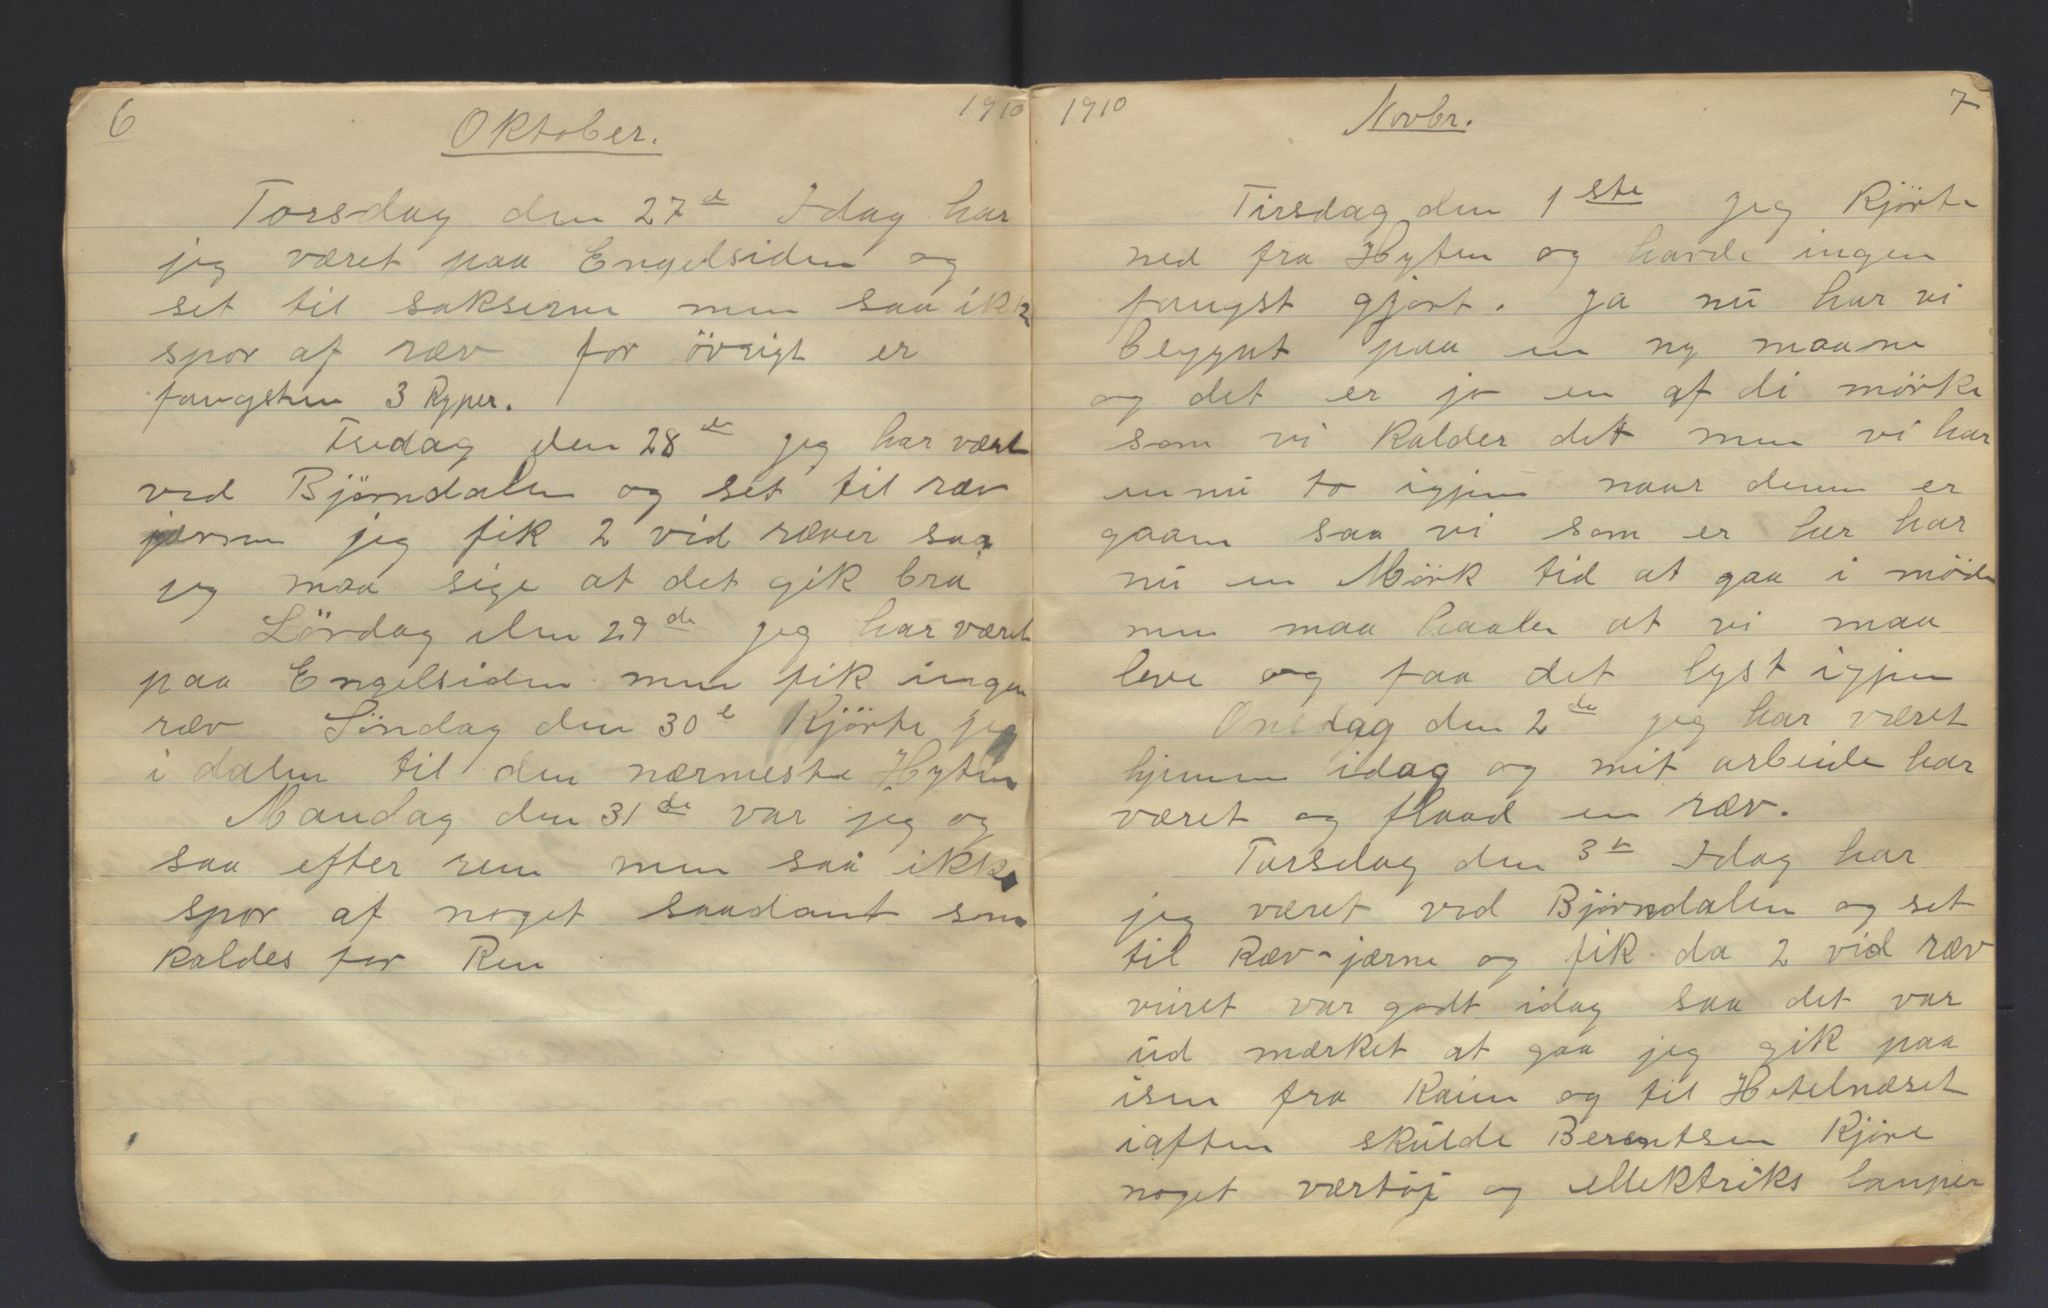 6 1910
Oktober.
Torsdag den 27de Idag har
jeg været paa Engelsiden og
set til sakserne men saa ikke
spor af ræv for övrigt er
fangsten 3 Ryper.
Fredag den 28de jeg har vært
ved Björndalen og set til ræv
jærnen jeg fik 2 vid ræver saa
jeg maa sige at det gik bra
Lördag den 29de jeg har været
paa Engelsiden men fik ingen
ræv Söndag den 30te Kjörte jeg
i dalen til den nærmeste Hyten
Mandag den 31de var jeg og
saa efter ren men saa ikke
spor af noget saadant som
kaldes for Ren
1910 Novbr. 7
Tirsdag den 1ste jeg Kjörte
ned fra Hyten og havde ingen
fangst gjort. ja nu har vi
begynt paa en ny maane
og det er jo en af di mörke
som vi kalder det men vi har
ennu to igjen naar denne er
gaaen saa vi som er her har
nu en Mörk tid at gaa i möde
men maa haabe at vi maa
leve og faa det lyst igjen
Onsdag den 2de jeg har været
hjemme idag og mit arbeide har
været og flaad en ræv.
Torsdag den 3de Idag har
jeg været ved Björndalen og set
til Ræv-jærne og fik da 2 vid ræv
veiret var godt idag saa det var
ud mærket at gaa jeg gik paa
isen fra Kaien og til Hotelnæset
iaften skulde Berentsen Kjöre
noget værtöi og ellektriks lamper